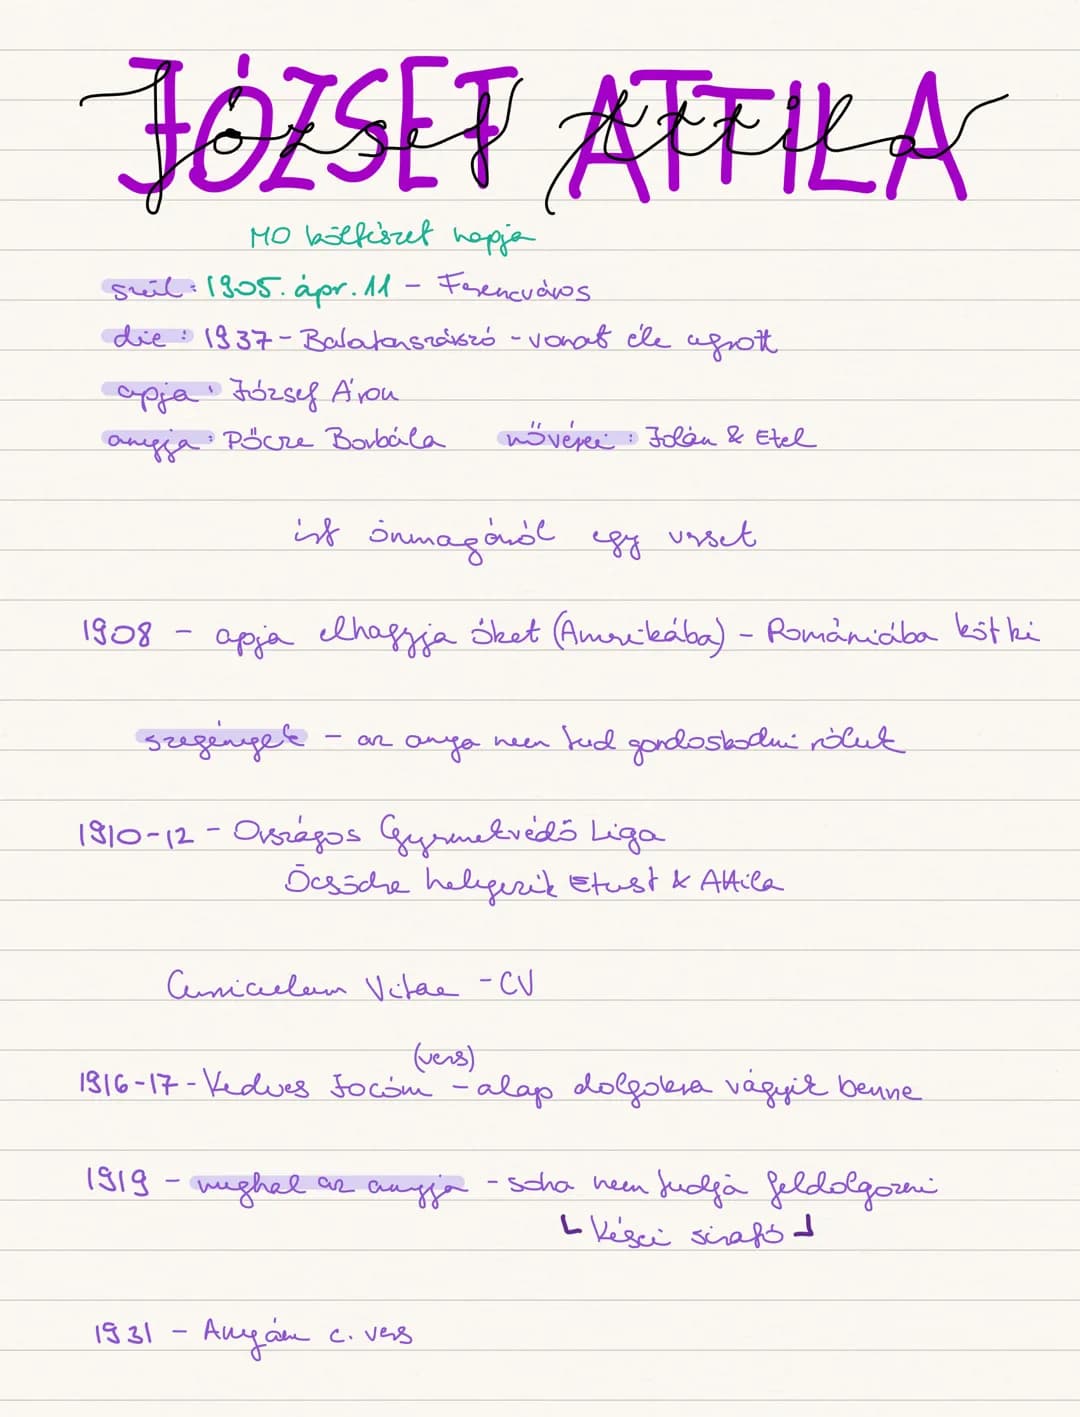 JÓZSEF ATTILA
József Attila
MO költészet napja
szül: 1905. ápr. 11 - Ferencváros
die: 1937 - Balatonszárszó - vonat éle ugrott
apja: József Áron
anyja: Pőcze Borbála nővérei: Jolán & Etel
írt önmagáról egy verset
1908 - apja elhagyja őket (Amerikába) - Romániába köt ki
szegények - az anya nem tud gondoskodni róluk
1910-12 - Országos Gyermekvédő Liga
Öcsödre helyezik Etust & Attila
Curriculum Vitae - CV
(vers)
1916-17 - Kedves Jocóm - alap dolgokra vágyik benne
1919 - meghal az anyja - soha nem tudja feldolgozni
Kései sirató
1931 - Anyám c. vers